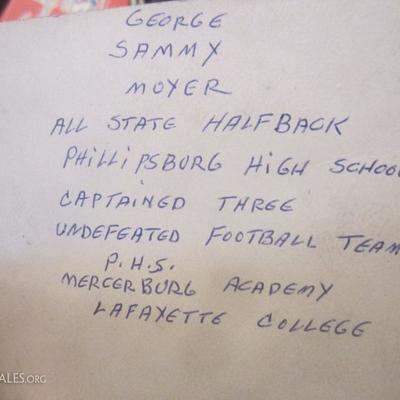 GEORGE
SAMMY
MOYER
ALL STATE HALFBACK
PHILLIPSBURG HIGH SCHOOL
CAPTAINED THREE
UNDEFEATED FOOTBALL TEAM
P.H.S.
MERCERBURG ACADEMY
LAFAYETTE COLLEGE
ALES.ORG